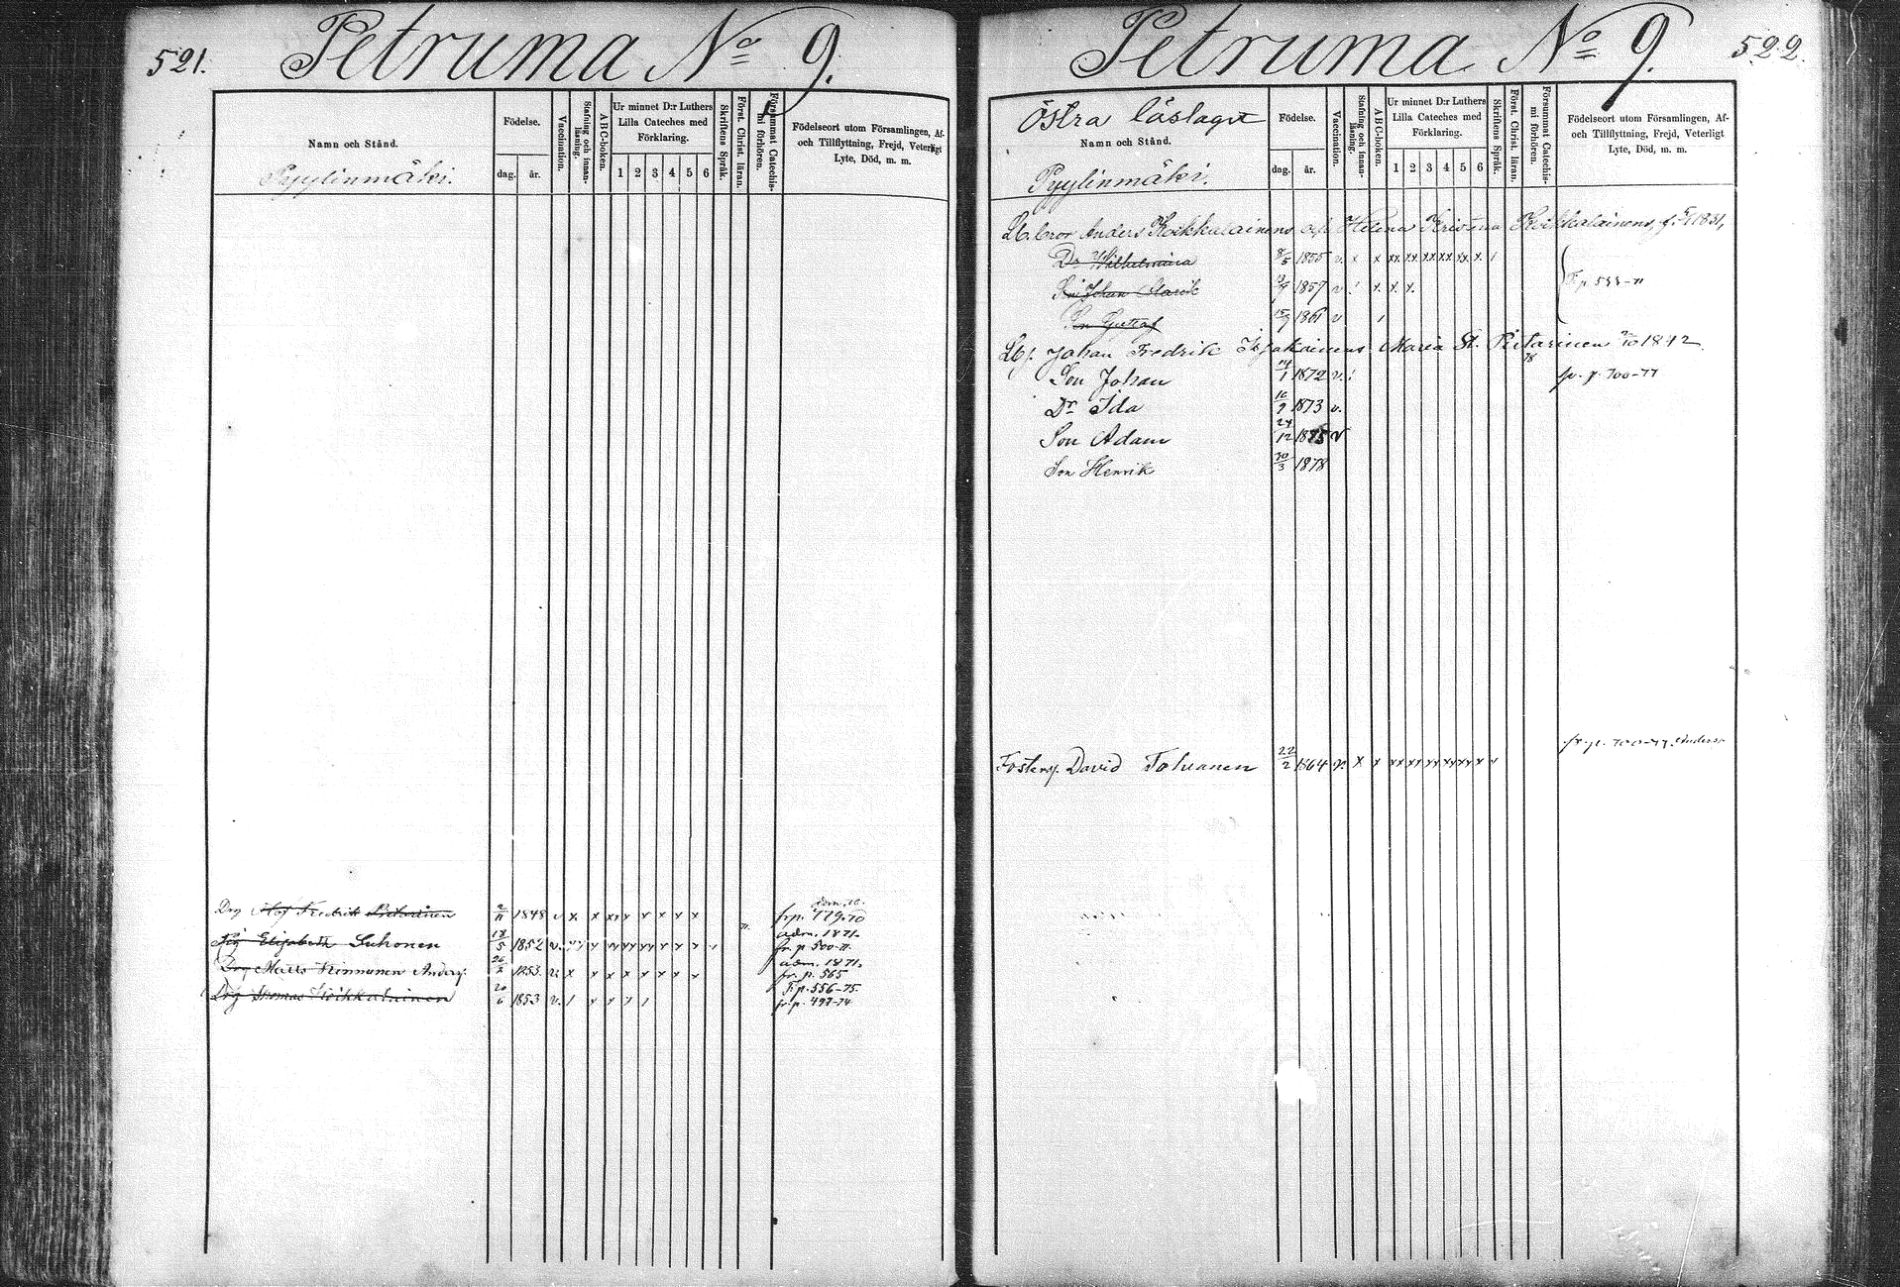 521.
Petruma No 9.
Namn och Stånd.
Pyylinmäki.
Födelse.
dag. år.
Vaccination.
Stafning och innan-läsning.
ABC-boken.
Ur minnet D:r Luthers
Lilla Cateches med
Förklaring.
1 2 3 4 5 6
Skriftens Språk.
Först. Christ. läran.
Försummat Catechis-
mi förhören.
Födelseort utom Församlingen, Af-
och Tillflyttning, Frejd, Veterligt
Lyte, Död, m. m.
Drg Olof Fredrik 2/11 1848 v x x xx x x x x x frp. 779-70
Pig Elizabeth Suhonen 18/5 1852 v. adm. 1871. fr. p. 500-71
Drg Matts Kinnunen Anders. 26/2 1853 v. x x x x x x x x adm. 1871. fr. p. 565
Drg Thomas Koikkalainen 20/6 1853 v. T. p. 556-75. fr. p. 497-74
522.
Petruma No 9.
Östra läslaget
Namn och Stånd.
Pyylinmäki.
Födelse.
dag. år.
Vaccination.
Stafning och innan-läsning.
ABC-boken.
Ur minnet D:r Luthers
Lilla Cateches med
Förklaring.
1 2 3 4 5 6
Skriftens Språk.
Först. Christ. läran.
Försummat Catechis-
mi förhören.
Födelseort utom Församlingen, Af-
och Tillflyttning, Frejd, Veterligt
Lyte, Död, m. m.
Anders Koikkalainens Helena Kristina Koikkalainens, 1831,
Dr Wilhelmina 8/5 1855 v. x x xx xx xx xx xx x
Son Johan 1857 v x x x T. p. 533-71
Son Gustaf 15/9 1861 v
Johan Fredrik Maria St. Pietarinen 1842
Son Johan 1872 v. fr. p. 700-77
Dr Ida 16/9 1873 v.
Son Adam 24/12 1875 v
Son Henrik 30/3 1878
fr. p. 700-77. Anders.
Fosters. David Tolvanen 22/2 1864 v. x x xx xx xx xx xx x